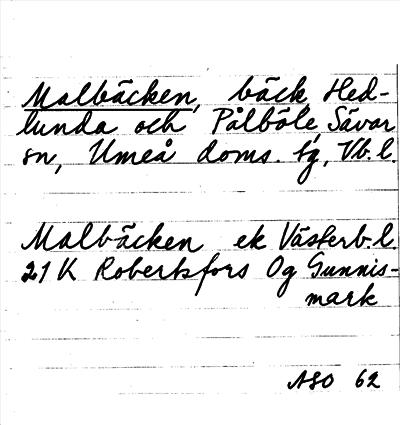 Malbäcken, bäck, Hed-
lunda och Pålböle, Sävar
sn, Umeå doms. tg, Vb.l.
Malbäcken ek Västerb.l.
21 K Robertsfors Og Gunnis-
mark
ASO 62